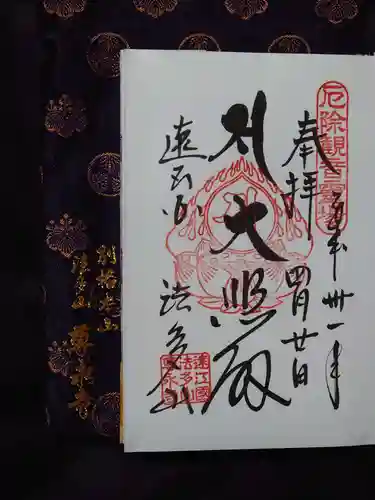 厄除觀音霊場
奉拝
平成卅一年
四月廿日
大悲殿
遠州 法多山
遠江國
法多山
尊永寺
別格本山
法多山 尊永寺